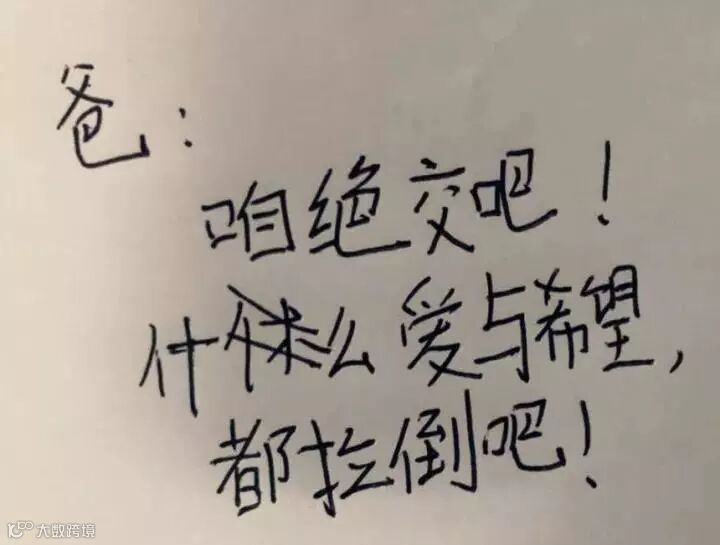 爸:
咱绝交吧!
什么爱与希望,
都拉倒吧!
大数跨境